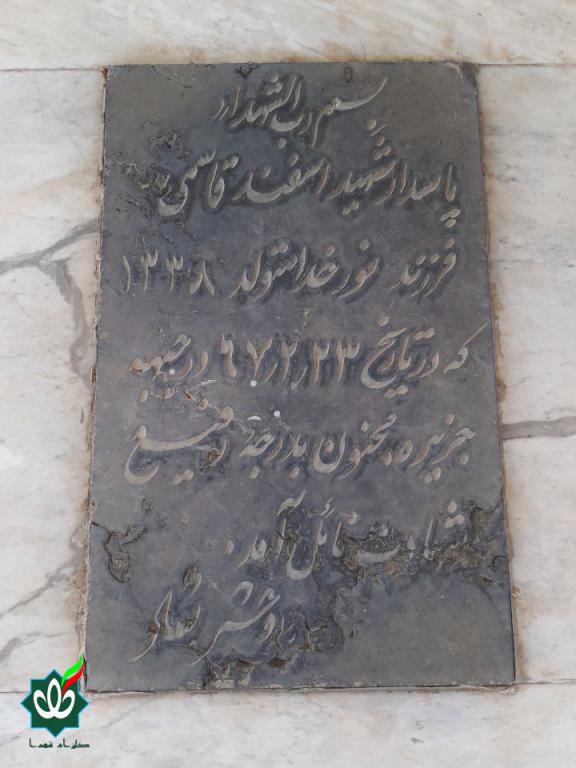 بسم رب الشهداء
پاسدار شهید اسفند قاسمی
فرزند نورخدا متولد ۱۳۳۸
که در تاریخ ۶۷٫۲٫۲۳ در جبهه
جزیره مجنون بدرجه رفیع
شهادت نائل آمد.
گلزار شهدا